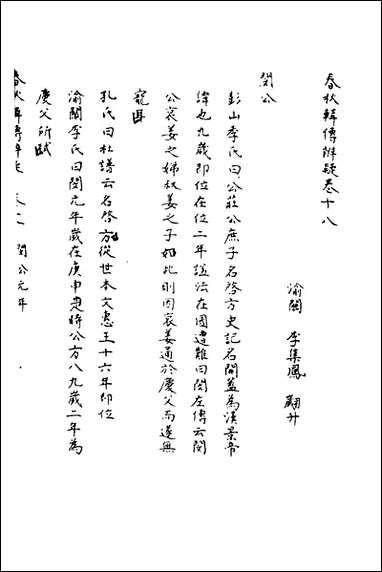 春秋輯傳辨疑卷十八
渝關 李集鳳 翽升
閔公
彭山李氏曰公莊公庶子名啓方史記名開蓋為漢景帝
諱也九歲即位在位二年諡法在國遭難曰閔左傳云閔
公哀姜之娣叔姜之子如此則因哀姜通於慶父而遂無
寵耳
孔氏曰杜譜云名啓方從世本文惠王十六年即位
渝關李氏曰閔元年歲在庚申是時公方八九歲二年為
慶父所弒
春秋輯傳辨疑 卷十八 閔公元年